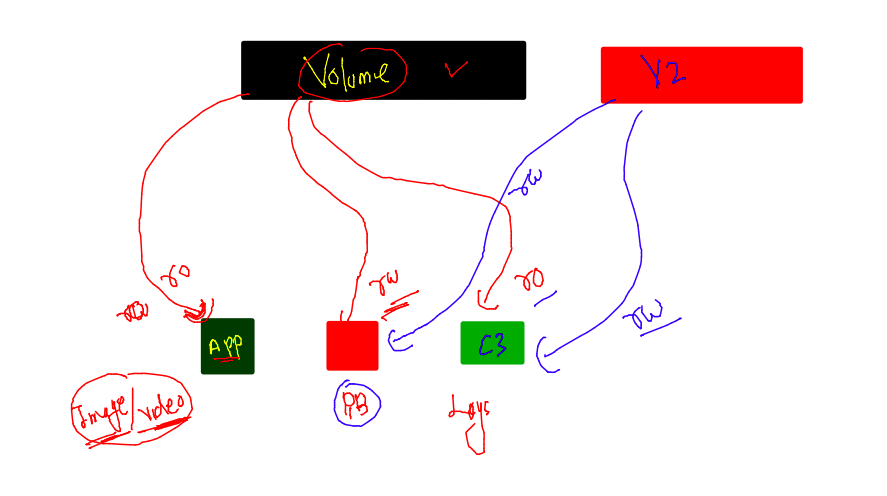 Volume
V2
rw
ro
rw
ro
rw
APP
C3
Image/video
PB
Logs